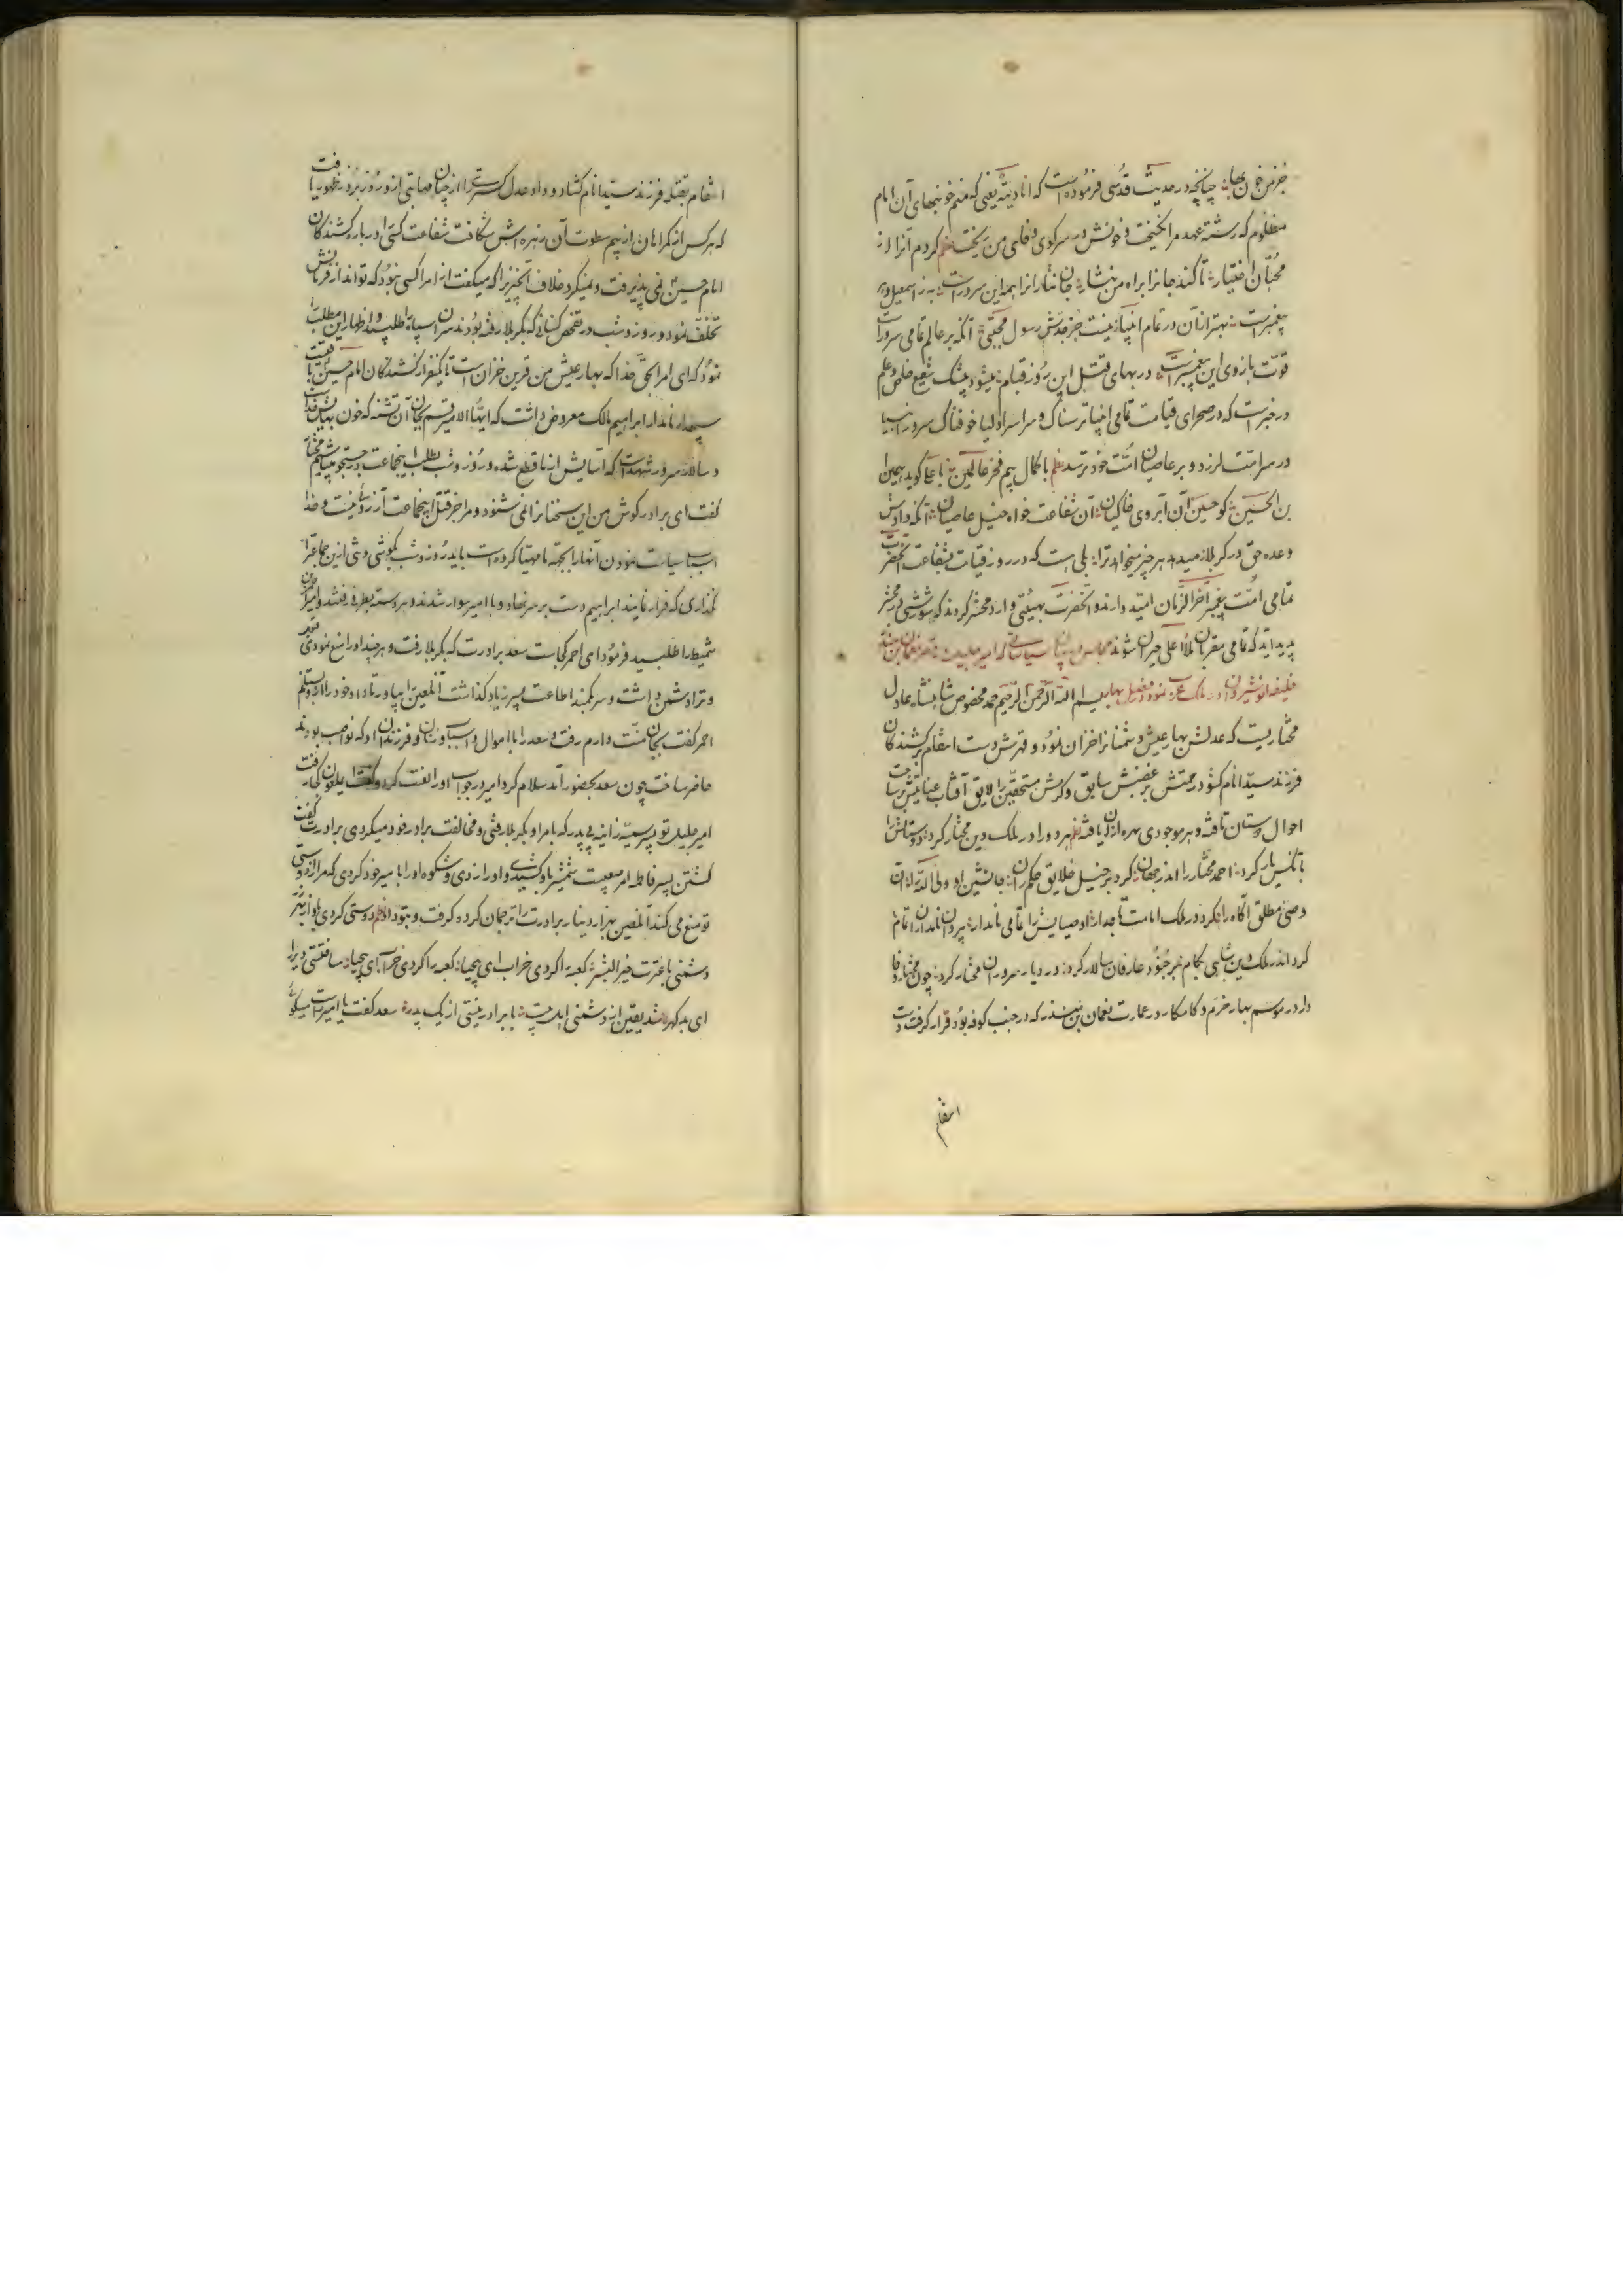 چنانچه در حدیث قدسی فرموده است که انا دیته یعنی که منم خونبهای آن امام
مظلوم که رشته عهد مرا نکسیخت و خونش در سر کوی وفای من ریخت نظم کردم آنرا از
محبان اختیار تا کند جانرا براه من نثار جان نثارانرا همه این سرور است به ز اسمعیل
پیغمبر است بهتر از آن در تمام انبیا نیست جز جدش رسول مجتبی آنکه بر عالم تمامی سرور است
قوت بازوی این پیغمبر است در بهای قتل این روز قیام میشود بیشک شفیع خاص و عام
در خبر است که در صحرای قیامت تمامی انبیا ترسناک و سراسر اولیا خوفناک سرور انبیا
در سر امت لرزد و بر عاصیان امت خود ترسد نظم با کمال بیم فخر عالمین با علی گوید همین
بن الحسین کو حسین آن آبروی خاکیان آن شفاعت خواه خیل عاصیان آنکه دادش
وعده حق در کربلا میدهد هر چیز میخواهد ترا بلی هست که در روز قیامت بشفاعت آنحضرت
تمامی امت پیغمبر آخر الزمان امید وارند و آنحضرت بهیئتی وارد محشر گردند که شورشی در محشر
پدید آید که تمامی مقربان ملأ اعلی حیران شوند مجلس در بیان سیاستی که امیر جلیل در قصر نعمان بن منذر
خلیفه انوشیروان در ملک عرب نمود در فصل بهار بسم الله الرحمن الرحیم حمد مخصوص شاهنشاه عادل
مختاریست که عدلش بهار عیش دشمنانرا خزان نمود و قهرش دست انتقام بر کشندگان
فرزند سید انام کشود رحمتش بر غضبش سابق و کرمش مستحقین را لایق آفتاب عنایتش بر ساحت
احوال دوستان تافته و هر موجودی بهره از آن یافته نظم هر دو را در ملک دین مختار کرد دوستانش را
با نکس یار کرد احمد مختار را اندر جهان کرد بر خیل خلایق حکمران جانشین او ولی الله را آن
وصی مطلق آگاه را کرد در ملک امامت تاجدار اوصیایش را تمامی نامدار پیروان نامداران را تمام
کرد اندر ملک دین شاهی بکام بر جنود عارفان سالار کرد در دیار سروران مختار کرد چون مختار وفا
دار در موسم بهار خرم و کامکار در عمارت نعمان بن منذر که در جنب کوفه بود قرار گرفت دست
انتقام
انتقام بقتله فرزند سید انام کشاد و داد عدل گستری را از چنان صلابتی از و روز بروز ظهور یافت
که هر کس از گمراهان از بیم سطوت آن زهره اش شکافت شفاعت کسی را در باره کشندگان
امام حسین نمی پذیرفت و نمیکرد خلاف آنچیز را که میگفت از امرا کسی نبود که تواند از فرمانش
تخلف نمود و روز و شب در تفحص کسانی که بکربلا رفته بودند سران سپاه را طلبید و اظهار این مطلب
نمود که ای امرا بحق خدا که بهار عیش من قرین خزان است تا یکنفر از کشندگان امام حسین باقیست
سپهدار نامدار ابراهیم مالک معروض داشت که ایها الامیر قسم بجان آن تشنه که خون بهایش خداست
و سالار سرور شهداست که آسایش از ما قطع شده و روز و شب بطلب اینجماعت در جستجو میباشیم مختار
گفت ای برادر گوش من این سخنانرا نمی شنود و مرا جز قتل اینجماعت آرزوئی نیست و خدا
اسباب سیاست نمودن آنها را بجهة ما مهیا کرده است باید روز و شب بکوشی و شی از این جماعترا
نگذاری که فرار نمایند ابراهیم دست بر سر نهاد و با امیر سوار شدند و هر دسته بطرفی رفتند و امیر احمر بن
شمیط را طلبید فرمود ای احمر کجاست سعد برادرت که بکربلا رفت و هر چند او را منع نمودی
و ترا دشمن داشت و سر بکمند اطاعت پسر زیاد گذاشت آنلعین را بیاور تا داد خود را از او بستانم
احمر گفت بجان منت دارم رفت و سعد را با اموال و اسباب و زنان و فرزندان او که ناصب بودند
حاضر ساخت چون سعد بحضور آمد سلام کرد امیر در جواب او را لعنت کرد و گفت ای ملعون کجا رفت
امیر جلیل تو پسر سمیه زانیه بی پدر که با مر او بکربلا رفتی و مخالفت برادر خود میکردی برادرت گفت
کشتن پسر فاطمه امر صعبیست شمشیر باو کشیدی و او را زدی و شکوه او را با میر خود کردی که مرا از دوستی
تو منع می کند آنلعین هزار دینار برادرت را ترجمان کرده گرفت و بتو داد نظم دوستی کردی باولاد
دشمنی با عترت خیر البشر کعبه را کردی خراب ای بیحیا کعبه را کردی خراب ای بیحیا ساختی دیرا
ای بد گهر شد یقین از دشمنی اهل بیت با برادر نیستی از یک پدر سعد گفت یا امیر راست میگوئی